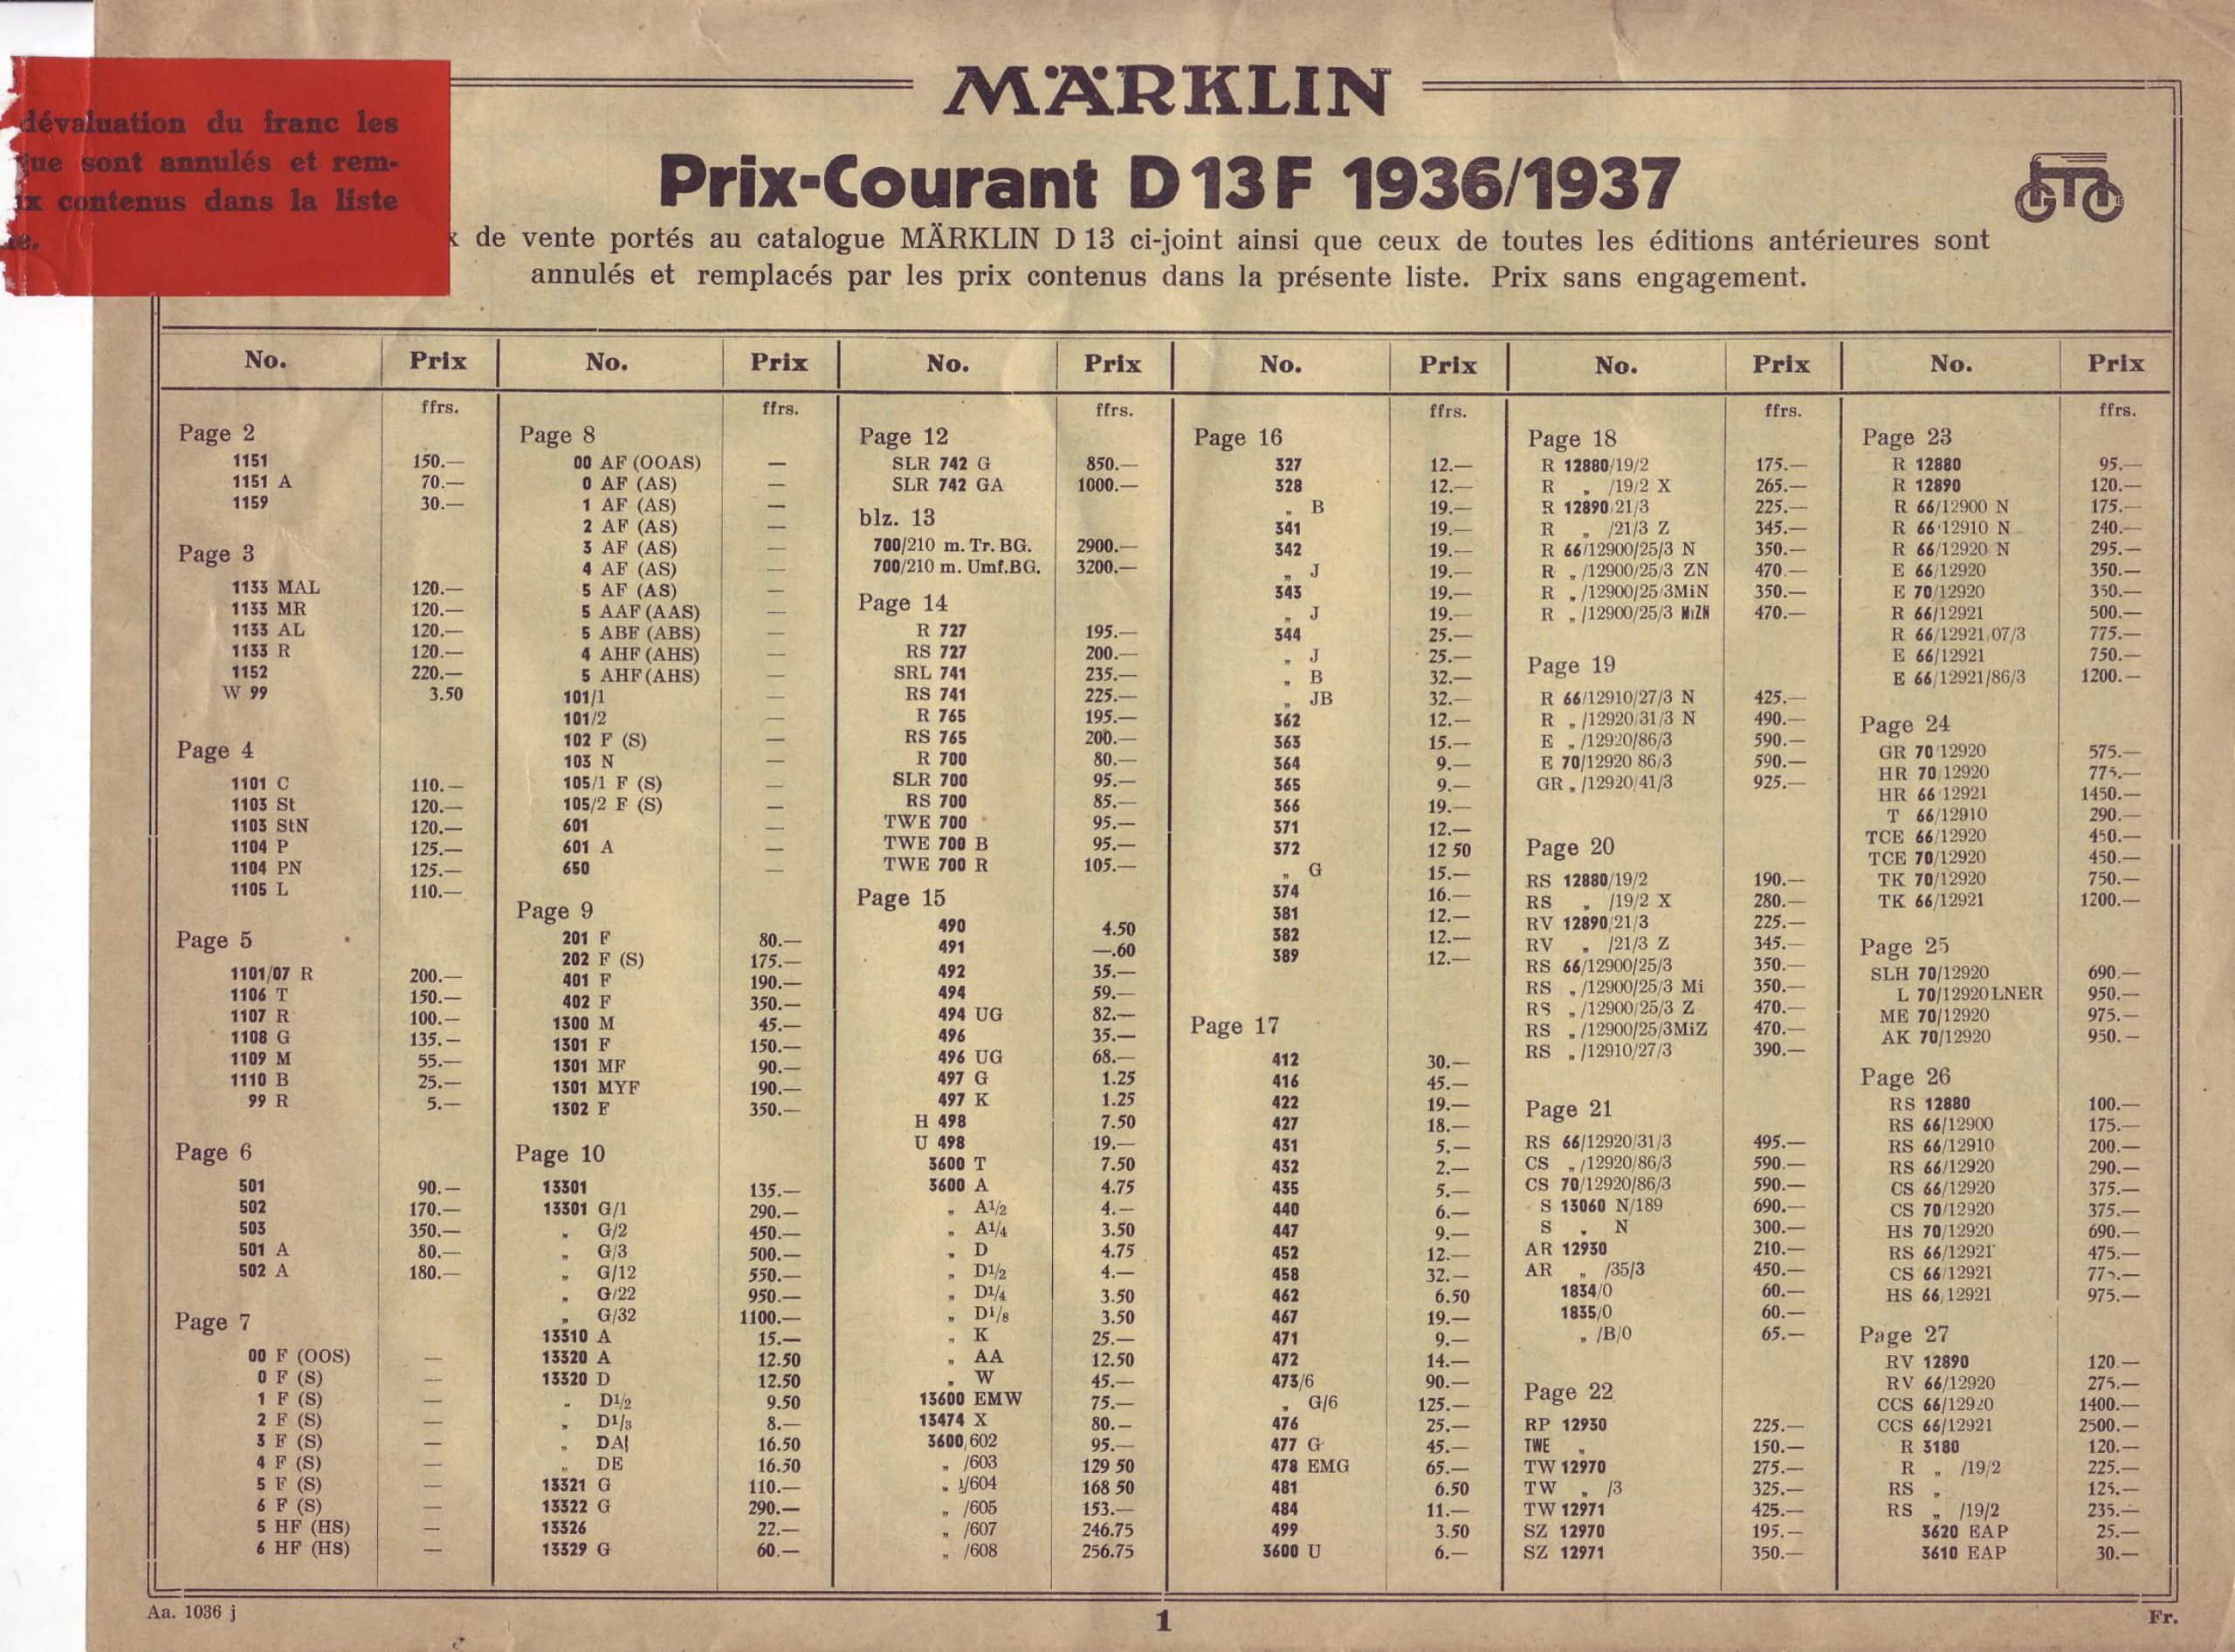 dévaluation du franc les
que sont annulés et rem-
ix contenus dans la liste
MÄRKLIN
Prix-Courant D 13 F 1936/1937
x de vente portés au catalogue MÄRKLIN D 13 ci-joint ainsi que ceux de toutes les éditions antérieures sont
annulés et remplacés par les prix contenus dans la présente liste. Prix sans engagement.
No. Prix
ffrs.
Page 2
1151 150.—
1151 A 70.—
1159 30.—
Page 3
1133 MAL 120.—
1133 MR 120.—
1133 AL 120.—
1133 R 120.—
1152 220.—
W 99 3.50
Page 4
1101 C 110.—
1103 St 120.—
1103 StN 120.—
1104 P 125.—
1104 PN 125.—
1105 L 110.—
Page 5
1101/07 R 200.—
1106 T 150.—
1107 R 100.—
1108 G 135.—
1109 M 55.—
1110 B 25.—
99 R 5.—
Page 6
501 90.—
502 170.—
503 350.—
501 A 80.—
502 A 180.—
Page 7
00 F (OOS) —
0 F (S) —
1 F (S) —
2 F (S) —
3 F (S) —
4 F (S) —
5 F (S) —
6 F (S) —
5 HF (HS) —
6 HF (HS) —
No. Prix
ffrs.
Page 8
00 AF (OOAS) —
0 AF (AS) —
1 AF (AS) —
2 AF (AS) —
3 AF (AS) —
4 AF (AS) —
5 AF (AS) —
5 AAF (AAS) —
5 ABF (ABS) —
4 AHF (AHS) —
5 AHF (AHS) —
101/1 —
101/2 —
102 F (S) —
103 N —
105/1 F (S) —
105/2 F (S) —
601 —
601 A —
650 —
Page 9
201 F 80.—
202 F (S) 175.—
401 F 190.—
402 F 350.—
1300 M 45.—
1301 F 150.—
1301 MF 90.—
1301 MYF 190.—
1302 F 350.—
Page 10
13301 135.—
13301 G/1 290.—
„ G/2 450.—
„ G/3 500.—
„ G/12 550.—
„ G/22 950.—
„ G/32 1100.—
13310 A 15.—
13320 A 12.50
13320 D 12.50
„ D1/2 9.50
„ D1/3 8.—
„ DA 16.50
„ DE 16.50
13321 G 110.—
13322 G 290.—
13326 22.—
13329 G 60.—
No. Prix
ffrs.
Page 12
SLR 742 G 850.—
SLR 742 GA 1000.—
blz. 13
700/210 m. Tr. BG. 2900.—
700/210 m. Umf.BG. 3200.—
Page 14
R 727 195.—
RS 727 200.—
SRL 741 235.—
RS 741 225.—
R 765 195.—
RS 765 200.—
R 700 80.—
SLR 700 95.—
RS 700 85.—
TWE 700 95.—
TWE 700 B 95.—
TWE 700 R 105.—
Page 15
490 4.50
491 —.60
492 35.—
494 59.—
494 UG 82.—
496 35.—
496 UG 68.—
497 G 1.25
497 K 1.25
H 498 7.50
U 498 19.—
3600 T 7.50
3600 A 4.75
„ A1/2 4.—
„ A1/4 3.50
„ D 4.75
„ D1/2 4.—
„ D1/4 3.50
„ D1/8 3.50
„ K 25.—
„ AA 12.50
„ W 45.—
13600 EMW 75.—
13474 X 80.—
3600/602 95.—
„ /603 129 50
„ /604 168 50
„ /605 153.—
„ /607 246.75
„ /608 256.75
No. Prix
ffrs.
Page 16
327 12.—
328 12.—
„ B 19.—
341 19.—
342 19.—
„ J 19.—
343 19.—
„ J 19.—
344 25.—
„ J 25.—
„ B 32.—
„ JB 32.—
362 12.—
363 15.—
364 9.—
365 9.—
366 19.—
371 12.—
372 12 50
„ G 15.—
374 16.—
381 12.—
382 12.—
389 12.—
Page 17
412 30.—
416 45.—
422 19.—
427 18.—
431 5.—
432 2.—
435 5.—
440 6.—
447 9.—
452 12.—
458 32.—
462 6.50
467 19.—
471 9.—
472 14.—
473/6 90.—
„ G/6 125.—
476 25.—
477 G 45.—
478 EMG 65.—
481 6.50
484 11.—
499 3.50
3600 U 6.—
No. Prix
ffrs.
Page 18
R 12880/19/2 175.—
R „ /19/2 X 265.—
R 12890/21/3 225.—
R „ /21/3 Z 345.—
R 66/12900/25/3 N 350.—
R „ /12900/25/3 ZN 470.—
R „ /12900/25/3MiN 350.—
R „ /12900/25/3 MiZN 470.—
Page 19
R 66/12910/27/3 N 425.—
R „ /12920/31/3 N 490.—
E „ /12920/86/3 590.—
E 70/12920 86/3 590.—
GR „ /12920/41/3 925.—
Page 20
RS 12880/19/2 190.—
RS „ /19/2 X 280.—
RV 12890/21/3 225.—
RV „ /21/3 Z 345.—
RS 66/12900/25/3 350.—
RS „ /12900/25/3 Mi 350.—
RS „ /12900/25/3 Z 470.—
RS „ /12900/25/3MiZ 470.—
RS „ /12910/27/3 390.—
Page 21
RS 66/12920/31/3 495.—
CS „ /12920/86/3 590.—
CS 70/12920/86/3 590.—
S 13060 N/189 690.—
S „ N 300.—
AR 12930 210.—
AR „ /35/3 450.—
1834/0 60.—
1835/0 60.—
„ /B/0 65.—
Page 22
RP 12930 225.—
TWE „ 150.—
TW 12970 275.—
TW „ /3 325.—
TW 12971 425.—
SZ 12970 195.—
SZ 12971 350.—
No. Prix
ffrs.
Page 23
R 12880 95.—
R 12890 120.—
R 66/12900 N 175.—
R 66/12910 N 240.—
R 66/12920 N 295.—
E 66/12920 350.—
E 70/12920 350.—
R 66/12921 500.—
R 66/12921/07/3 775.—
E 66/12921 750.—
E 66/12921/86/3 1200.—
Page 24
GR 70/12920 575.—
HR 70/12920 775.—
HR 66/12921 1450.—
T 66/12910 290.—
TCE 66/12920 450.—
TCE 70/12920 450.—
TK 70/12920 750.—
TK 66/12921 1200.—
Page 25
SLH 70/12920 690.—
L 70/12920 LNER 950.—
ME 70/12920 975.—
AK 70/12920 950.—
Page 26
RS 12880 100.—
RS 66/12900 175.—
RS 66/12910 200.—
RS 66/12920 290.—
CS 66/12920 375.—
CS 70/12920 375.—
HS 70/12920 690.—
RS 66/12921 475.—
CS 66/12921 775.—
HS 66/12921 975.—
Page 27
RV 12890 120.—
RV 66/12920 275.—
CCS 66/12920 1400.—
CCS 66/12921 2500.—
R 3180 120.—
R „ /19/2 225.—
RS „ 125.—
RS „ /19/2 235.—
3620 EAP 25.—
3610 EAP 30.—
Aa. 1036 j
1
Fr.